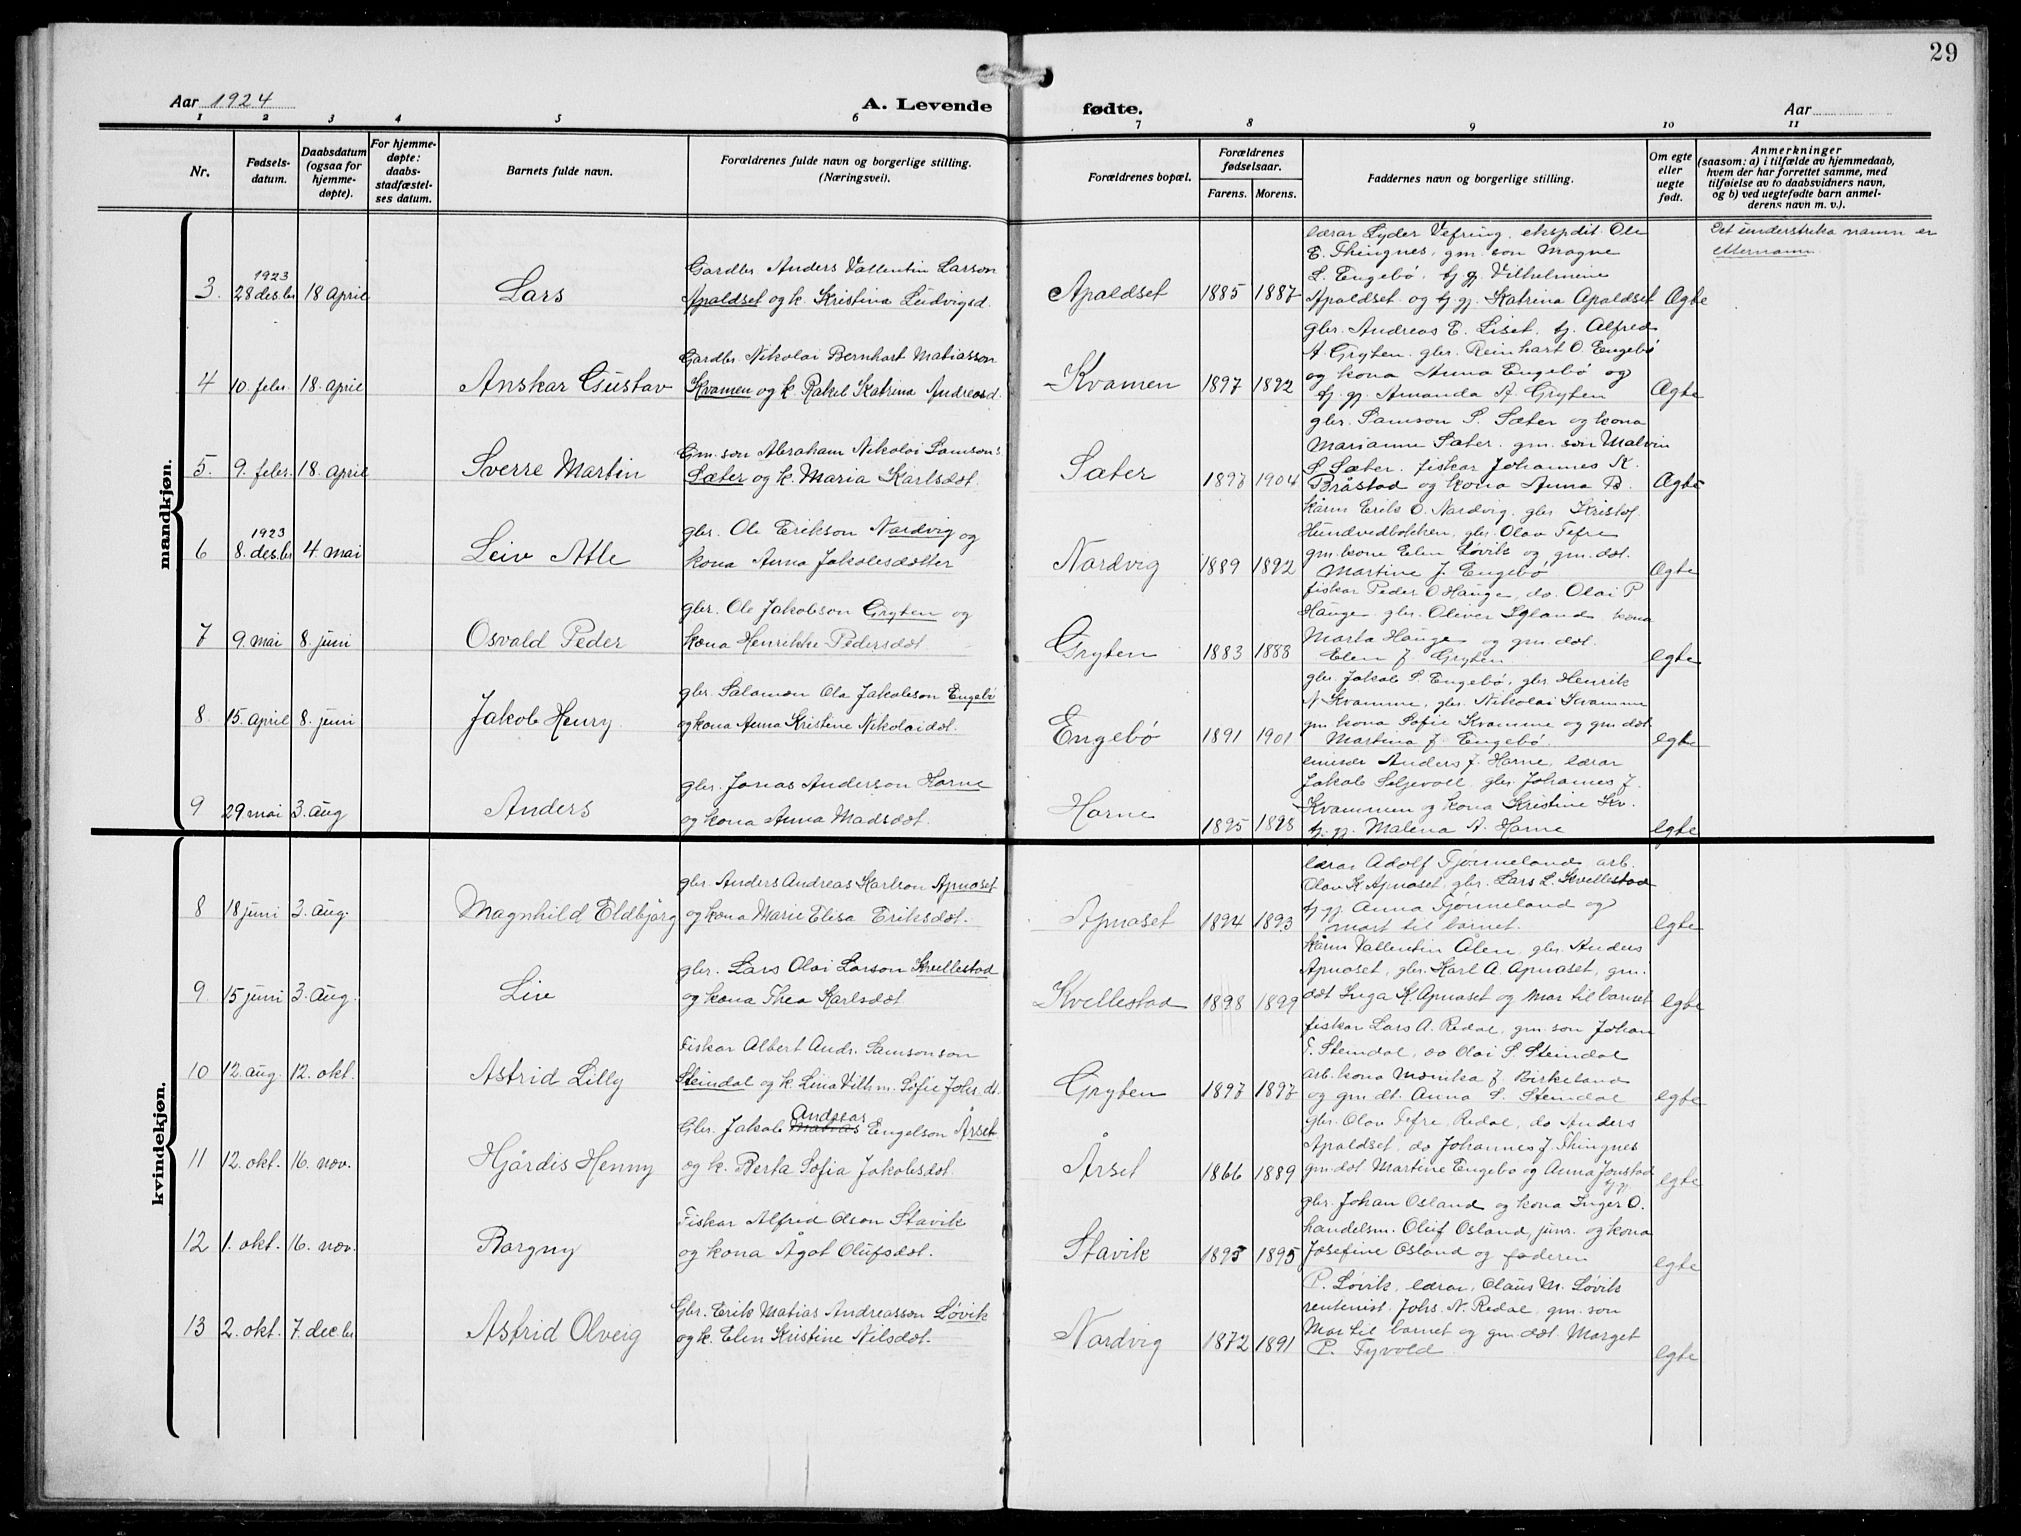 29
Aar 1924
A. Levende
fødte.
Aar
1 2 3 4 5 6 7 8 9 10 11
Nr.
Fødsels-
datum.
Daabsdatum
(ogsaa for
hjemme-
døpte).
For hjemme-
døpte:
daabs-
stadfæstel-
ses datum.
Barnets fulde navn.
Forældrenes fulde navn og borgerlige stilling.
(Næringsvei).
Forældrenes bopæl.
Forældrenes
fødselsaar.
Farens. Morens.
Faddernes navn og borgerlige stilling.
Om egte
eller
uegte
født.
Anmerkninger
(saasom: a) i tilfælde av hjemmedaab,
hvem der har forrettet samme, med
tilføielse av to daabsvidners navn,
og b) ved uegtefødte barn anmel-
derens navn m. v.).
mandkjøn.
3. 1923 28 des.br 18 april
Lars
Gardbr. Anders Vallentin Larson
Apaldset og k. Kristina Ludvigsd.
Apaldset 1885 1887
lærar Lyder Vefring, ekspdit. Ole
E. Thingnes, gm. son Magne
L. Engebø, tj. gj. Vilhelmine
Apaldset og tj. gj. Katrina Apaldset
Ægte
Det understreka namn er
etternamn.
4 10. febr. 18. april
Anskar Gustav
Gardbr. Nikolai Bernhart Matiasson
Kvamen og k. Rakel Katrina Andreasd.
Kvamen 1897 1892
gbr. Andreas E. Liset, tj. Alfred
A. Gryten. gbr. Reinhart O. Engebø
og kona Anna Engebø og
tj. gj. Amanda A. Gryten
Ægte
5. 9. febr. 18. april
Sverre Martin
Gm. son Abraham Nikolai Samsons
Sæter og k. Maria Karlsdøt.
Sæter 1897 1904
gbr. Samson S. Sæter og kona
Marianne Sæter. gm. son Malvin
S Sæter. fiskar Johannes K.
Bråstad og kona Anna B.
Ægte
6 1923 8. des.br 4 mai
Leiv Atle
gbr. Ole Erikson Nardvig og
kona Anna Jakobsdotter
Nardvig 1889 1892
kårm Erik O. Nardvig. gbr Kristof
Hundvedbakken, gbr. Olav Tefre
gm. kone Elen Løvik og gm. døt.
Martine J. Engebø
Ægte
7 9. mai 8. juni
Osvald Peder
gbr. Ole Jakobson Gryten og
kona Henrikke Pedersdøt.
Gryten 1883 1888
fiskar Peder O Hauge, do. Olai P
Hauge. gbr. Oliver Igland kona
Marta Hauge og gm. døt.
Elen J Gryten
egte
8. 15. april 8. juni
Jakob Henry
gbr. Salamon Ola Jakobson Engebø
og kona Anna Kristine Nikolaidøt.
Engebø 1891 1901
gbr. Jakob S. Engebø, gbr Henrik
N Kvamme, gbr. Nikolai Kvamme
gm. kona Sofie Kvamme og gm. døt
Martina J. Engebø.
egte
9 29 mai 3. aug
Anders
gbr. Jonas Anderson Horne
og kona Anna Madsdøt.
Horne 1895 1898
Anders J. Horne, lærar
Jakob Seljevoll, gbr. Johannes J.
Kvammen og kona Kristine Kv.
tj. gj. Malena A. Horne
egte
kvindekjøn.
8 18 juni 3. aug.
Magnhild Eldbjørg
gbr. Anders Andreas Karlson Apnaset
og kona Marie Elisa Eriksdøt.
Apnaset 1894 1893
lærar Adolf Tjønneland, arb.
Olav K Apnaset, gbr. Lars L. Kvellestad
tj. gj. Anna Tjønneland og
mart til barnet.
egte
9 15 juni 3. aug.
Liv
gbr. Lars Olai Larson Kvellestad
og kona Thea Karlsdøt
Kvellestad 1898 1899
kårm Vallentin Ålen, gbr. Anders
Apnaset, gbr. Karl A. Apnaset, gm.
døt Inga K. Apnaset og Mor til barnet
egte
10 12. aug. 12. okt.
Astrid Lilly
Fiskar Albert Andr. Samsonson
Steindal og k. Lina Vilhm. Sofie Johs. dt.
Gryten 1897 1897
fiskar Lars A. Redal, gm. son Johan
T. Steindal, do Olai S. Steindal
arb. kona Monika J. Birkeland
og gm. dt. Anna S. Steindal
egte
11 12. okt. 16. nov.
Hjördis Henny
Gbr. Jakob Matias Andreas Engelson Årset
og k. Berta Sofia Jakobsdøt.
Årset 1866 1889
gbr. Olav Tefre, Redal, do Anders
Apaldset, do Johannes J. Thingnes
gm. døt Martine Engebø og Anna Jonstad
tj. gj.
egte
12 1. okt. 16. nov.
Borgny
Fiskar Alfred Olson Stavik
og kona Ågot Olufsdøt.
Stavik 1893 1895
gbr. Johan Osland og kona Inger O.
handelsm. Oluf Osland, junr. og kona
Josefine Osland og faderen
egte
13 2. okt. 7. dec.br
Astrid Olveig
Gbr. Erik Matias Andreasson Løvik
og k. Elen Kristine Nilsdøt.
Nardvig 1872 1891
P. Løvik, lærar, Claus M. Løvik
rentenist. Johs. N. Redal, gm. son
Mor til barnet og gm. døt. Marget
P. Tyvold
egte